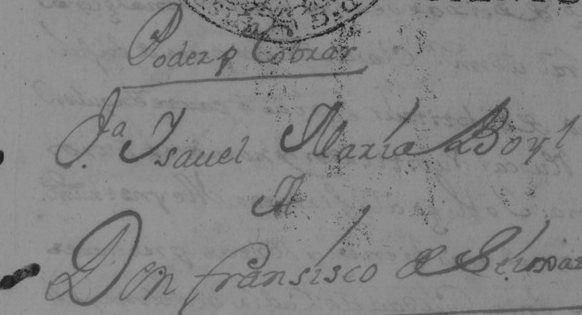 Poder p Cobrar
J.ª Ysauel Maria Boyl
A
Don fransisco de